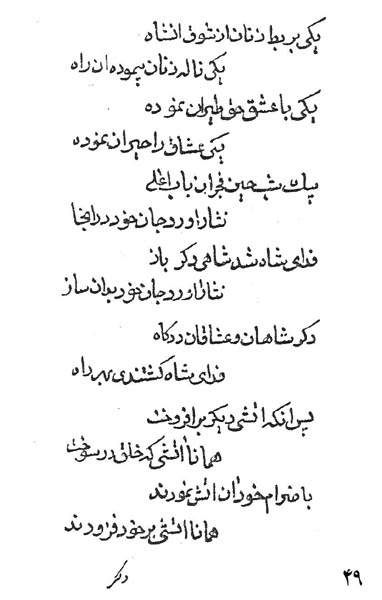 یکی بربط زنان از شوق انشاه
یکی ناله زنان پیموده ان راه
یکی با عشق حق طیران نموده
یکی عشاق را حیران نموده
یک شب حین فجر ان باب اعلی
نثار اورد جان خود در انجا
فدای شاه شد شاهی دکر باز
نثار اورد جان خود بران ساز
دکر شاهان و عشاقان درکاه
فدای شاه کشتندی بهر راه
پس انکه اتشی دیکر برافروخت
همانا اتشی که خلق در سوخت
باضرام خود ان اتش نمودند
همانا اتشی بر خود فزودند
دکر
۴۹